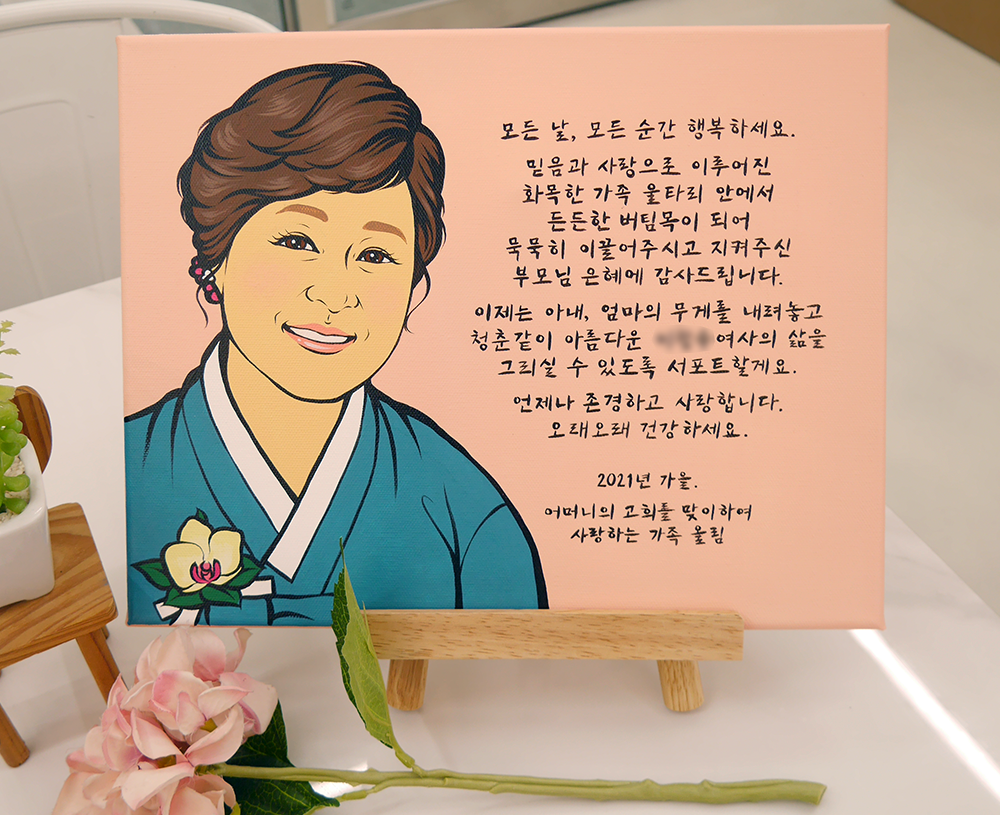 모든 날, 모든 순간 행복하세요.
믿음과 사랑으로 이루어진
화목한 가족 울타리 안에서
든든한 버팀목이 되어
묵묵히 이끌어주시고 지켜주신
부모님 은혜에 감사드립니다.
이제는 아내, 엄마의 무게를 내려놓고
청춘같이 아름다운 여사의 삶을
그리실 수 있도록 서포트할게요.
언제나 존경하고 사랑합니다.
오래오래 건강하세요.
2021년 가을.
어머니의 고희를 맞이하여
사랑하는 가족 올림